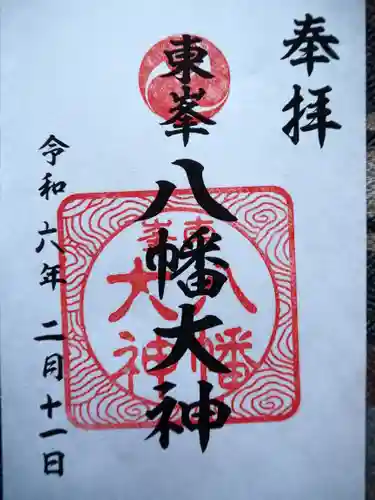 奉拝
東峯
八幡大神
東峯
八幡
大神
令和六年 二月十一日